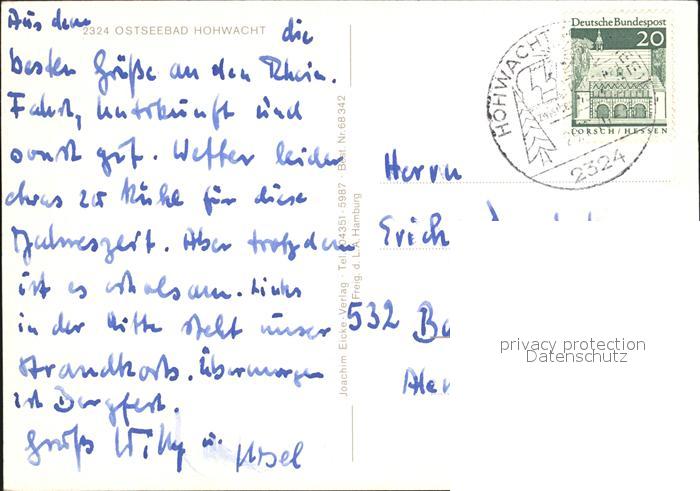 Aus dem
2324 OSTSEEBAD HOHWACHT
die
besten Grüße an den Rhein.
Fahrt, Unterkunft und
sonst gut. Wetter leider
etwas zu kühl für diese
Jahreszeit. Aber trotzdem
ist es erholsam. Links
in der Mitte steht unser
Strandkorb. Übermorgen
ist Bergfest.
Grüße Willy u.
Joachim Eicke-Verlag · Tel. 04351-5987 · Best. Nr. 68342
Freig. d. L.A. Hamburg
Deutsche Bundespost
20
LORSCH/HESSEN
HOHWACHT
2324
Herrn
Erich
532 Ba
privacy protection
Datenschutz